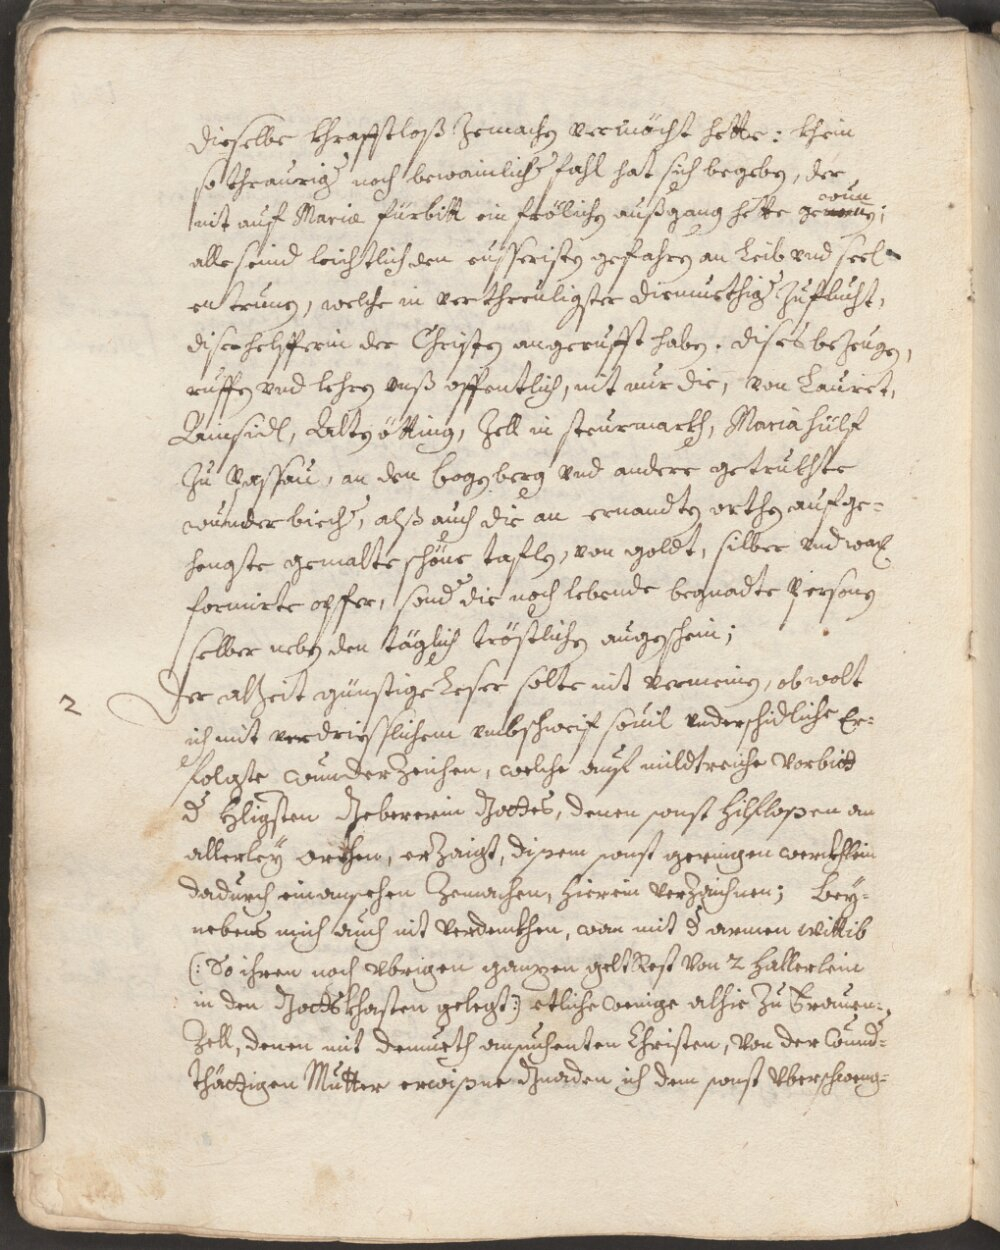 dieselbe khrafftloß zemachen vermöcht hette: khein
so thraurig noch bewainlich fahl hat sich begeben, der
nit auf Mariæ fürbitt ein frölichen außgang hette gewun
alle seind leichtlich den eusseristen gefahren an Leib vnd seel
entrunen, welche in verthreuligster diemuethig Zuflucht,
dise helfferin der Christen angerufft haben. dises bezeugen,
ruffen vnd lehren vnß offentlich, nit nur die, von Lauret,
Ainsidl, Alten ötting, Zell in steurmarkh, Maria hülf
zu Passau, an den bogenberg vnd andere getrukhte
wunderbiecher, alß auch die an ernandten orthen aufge-
hengte gemalte schöne taflen, von goldt, silber vnd wax
formirte opfer, sond die noch lebende begnadte Personen
selber neben den täglich tröstlichen augenschein;
2 Der alzeit günstige Leser solte nit vermeinen, ob wolt
ich mit verdriesslichem vmbschweif souil vnderschidliche Er-
folgte wunderzeichen, welche auf mildtreiche vorbitt
d hligsten Gebererin Gottes, denen sonst hilflosen an
allerley orthen, erzaigt, disem sonst geringen werkhlein
dadurch ein ansehen zemachen, hierein verzaichnen; Bey-
nebens mich auch nit verdenkhen, wan mit d armen wittib
(: So ihren noch vbrigen ganzen gelt Rest von 2 hallerlein
in den Gottskhasten gelegt :) etliche wenige alhie zu Frauen-
Zell, denen mit demueth ansuchenten Christen, von der wund-
thättigen Mutter erwisne Gnaden ich dem sonst vberschweng-